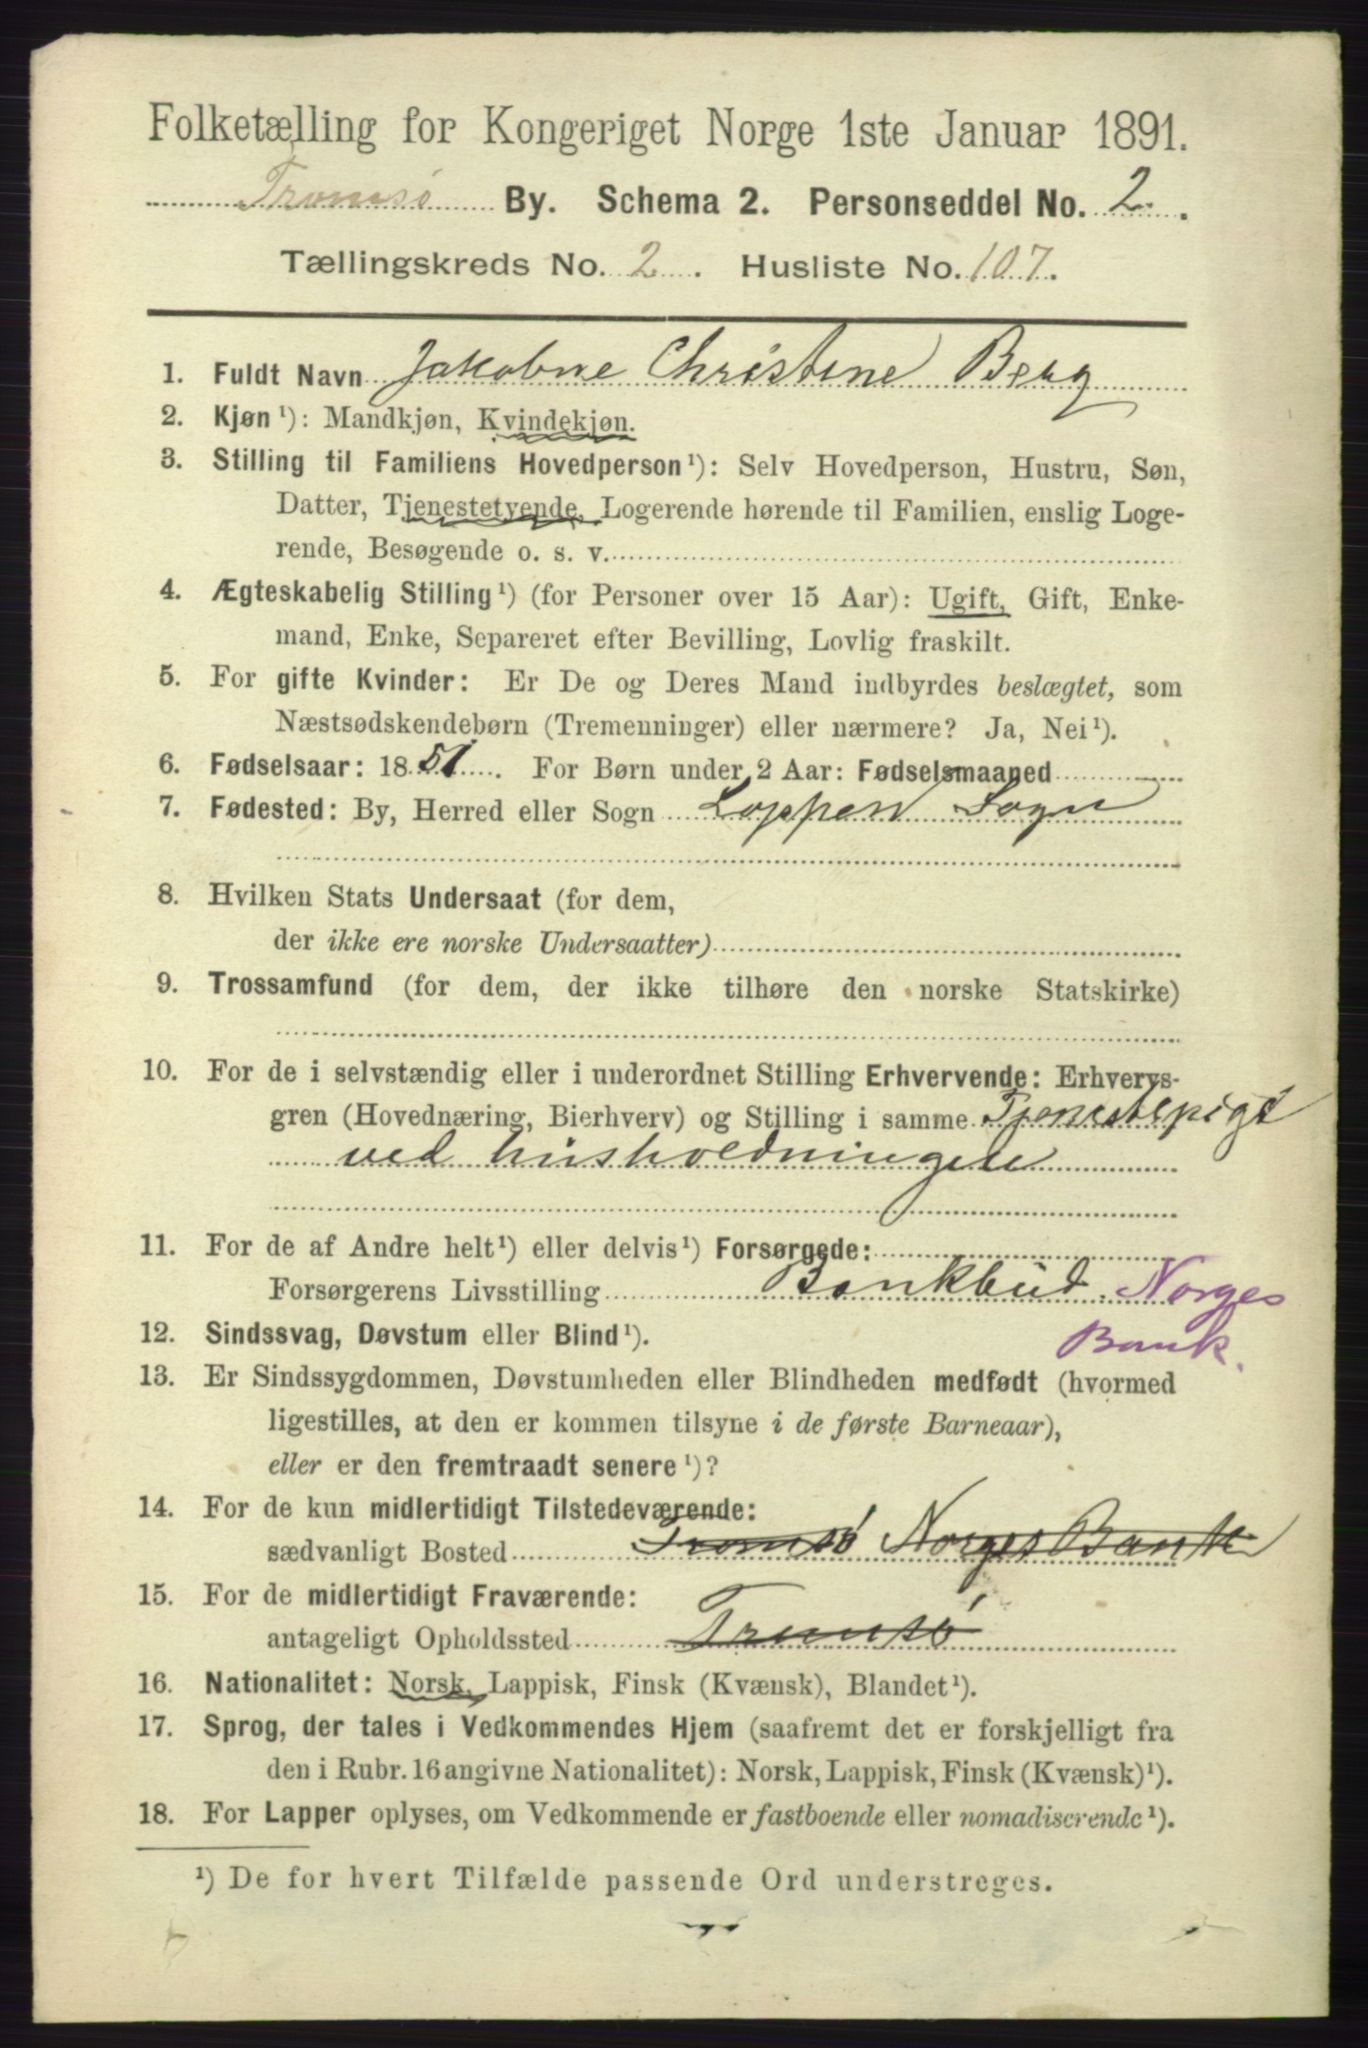 Folketælling for Kongeriget Norge 1ste Januar 1891.
Tromsø By. Schema 2. Personseddel No. 2.
Tællingskreds No. 2. Husliste No. 107.
1. Fuldt Navn Jakobine Christine Berg
2. Kjøn ¹): Mandkjøn, Kvindekjøn.
3. Stilling til Familiens Hovedperson ¹): Selv Hovedperson, Hustru, Søn,
Datter, Tjenestetyende, Logerende hørende til Familien, enslig Loge-
rende, Besøgende o. s. v.
4. Ægteskabelig Stilling ¹) (for Personer over 15 Aar): Ugift, Gift, Enke-
mand, Enke, Separeret efter Bevilling, Lovlig fraskilt.
5. For gifte Kvinder: Er De og Deres Mand indbyrdes beslægtet, som
Næstsødskendebørn (Tremenninger) eller nærmere? Ja, Nei ¹).
6. Fødselsaar: 1851. For Børn under 2 Aar: Fødselsmaaned
7. Fødested: By, Herred eller Sogn Loppen Sogn
8. Hvilken Stats Undersaat (for dem,
der ikke ere norske Undersaatter)
9. Trossamfund (for dem, der ikke tilhøre den norske Statskirke)
10. For de i selvstændig eller i underordnet Stilling Erhvervende: Erhvervs-
gren (Hovednæring, Bierhverv) og Stilling i samme Tjenestepige
ved husholdningen
11. For de af Andre helt ¹) eller delvis ¹) Forsørgede:
Forsørgerens Livsstilling Bankbud. Norges
Bank.
12. Sindssvag, Døvstum eller Blind ¹).
13. Er Sindssygdommen, Døvstumheden eller Blindheden medfødt (hvormed
ligestilles, at den er kommen tilsyne i de første Barneaar),
eller er den fremtraadt senere ¹)?
14. For de kun midlertidigt Tilstedeværende:
sædvanligt Bosted Tromsø Norges Bank
15. For de midlertidigt Fraværende:
antageligt Opholdssted Tromsø
16. Nationalitet: Norsk, Lappisk, Finsk (Kvænsk), Blandet ¹).
17. Sprog, der tales i Vedkommendes Hjem (saafremt det er forskjelligt fra
den i Rubr. 16 angivne Nationalitet): Norsk, Lappisk, Finsk (Kvænsk) ¹).
18. For Lapper oplyses, om Vedkommende er fastboende eller nomadiserende ¹).
¹) De for hvert Tilfælde passende Ord understreges.